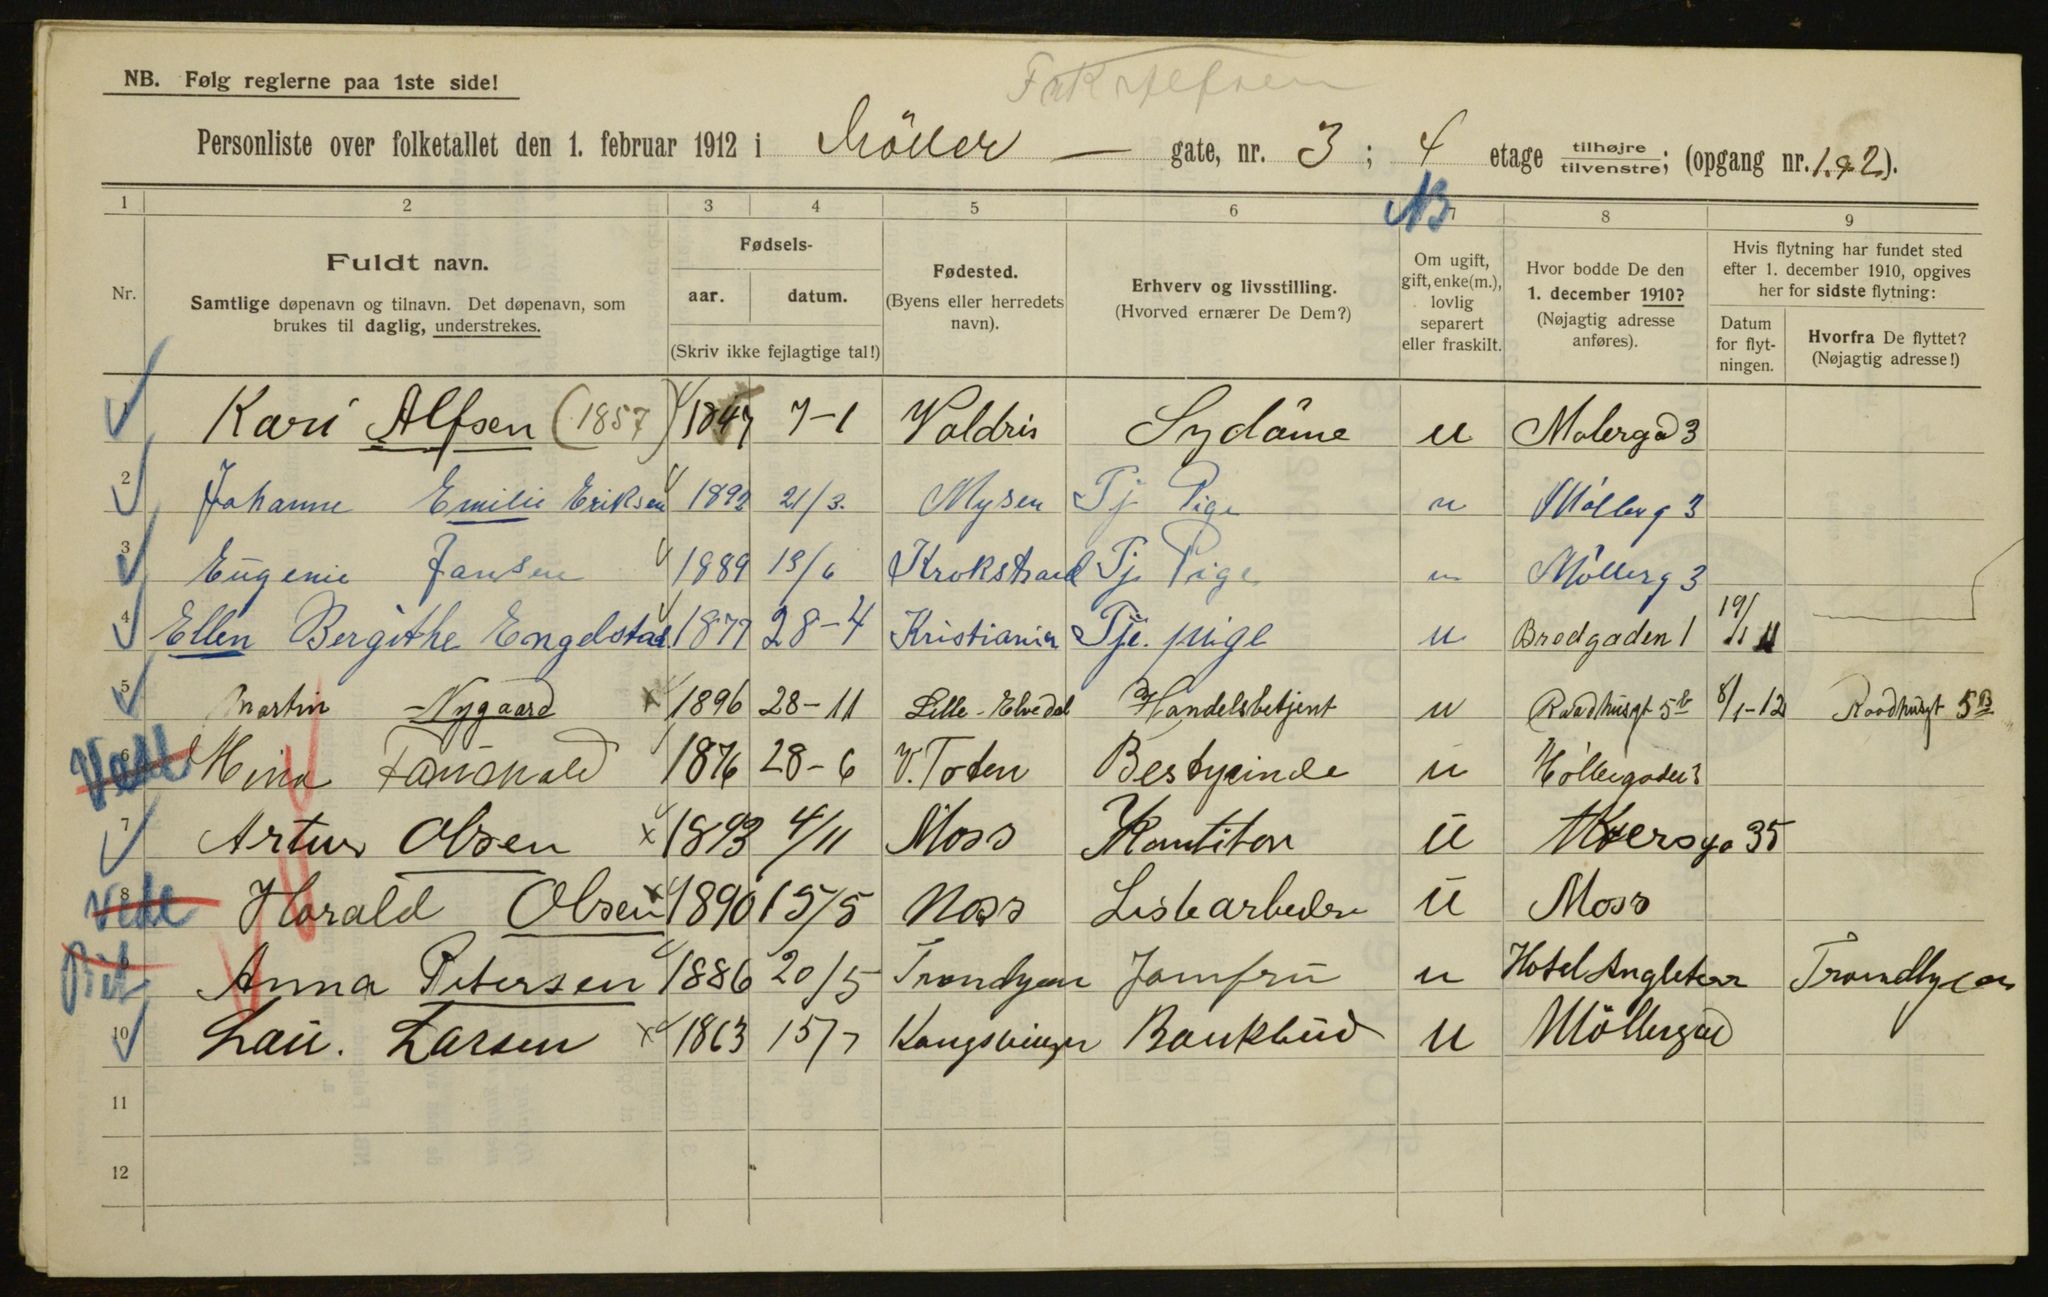 NB. Følg reglerne paa 1ste side!
Personliste over folketallet den 1. februar 1912 i Möller — gate, nr. 3 ; 4 etage tilhøjre/tilvenstre; (opgang nr. 1.&2).
NB
1 2 3 4 5 6 7 8 9
Nr.
Fuldt navn.
Samtlige døpenavn og tilnavn. Det døpenavn, som
brukes til daglig, understrekes.
Fødsels-
aar. datum.
(Skriv ikke fejlagtige tal!)
Fødested.
(Byens eller herredets
navn).
Erhverv og livsstilling.
(Hvorved ernærer De Dem?)
Om ugift,
gift, enke(m.),
lovlig
separert
eller fraskilt.
Hvor bodde De den
1. december 1910?
(Nøjagtig adresse
anføres).
Hvis flytning har fundet sted
efter 1. december 1910, opgives
her for sidste flytning:
Datum
for flyt-
ningen.
Hvorfra De flyttet?
(Nøjagtig adresse!)
1 Kari Alfsen (1857) 1847 7-1 Valdris Sydáme u Molergad 3
2 Johanne Emilie Eriksen 1892 21/3. Mysen Tj Pige u Møllerg 3
3 Eugenie Jansen 1889 13/6 Krokstrand Tj Pige u Møllerg 3
4 Ellen Bergithe Engelstad. 1877 28-4 Kristiania Tje. pige u Bredgaden 1 19/11 11
5 Martin Nygaard x 1896 28-11 Lille-Elvedal Handelsbetjent u Raadhusgt 5b 8/1-12 Raadhusgt 5B
6 Mina 1876 28-6 V. Toten Bestyrinde u Möllergaden 3
7 Artur Olsen x 1893 4/11 Moss Kontitor u Akersga 35
8 Harald Olsen x 1890 15/5 Moss Listearbeder u Moss
9 Anna Petersen 1886 20/5 Trondhjem Jomfru u Hotel Angleterr Trondhjem
10 Lau. Larsen x 1863 15/7 Kongsvinger Bankbud u Möllergad
11
12